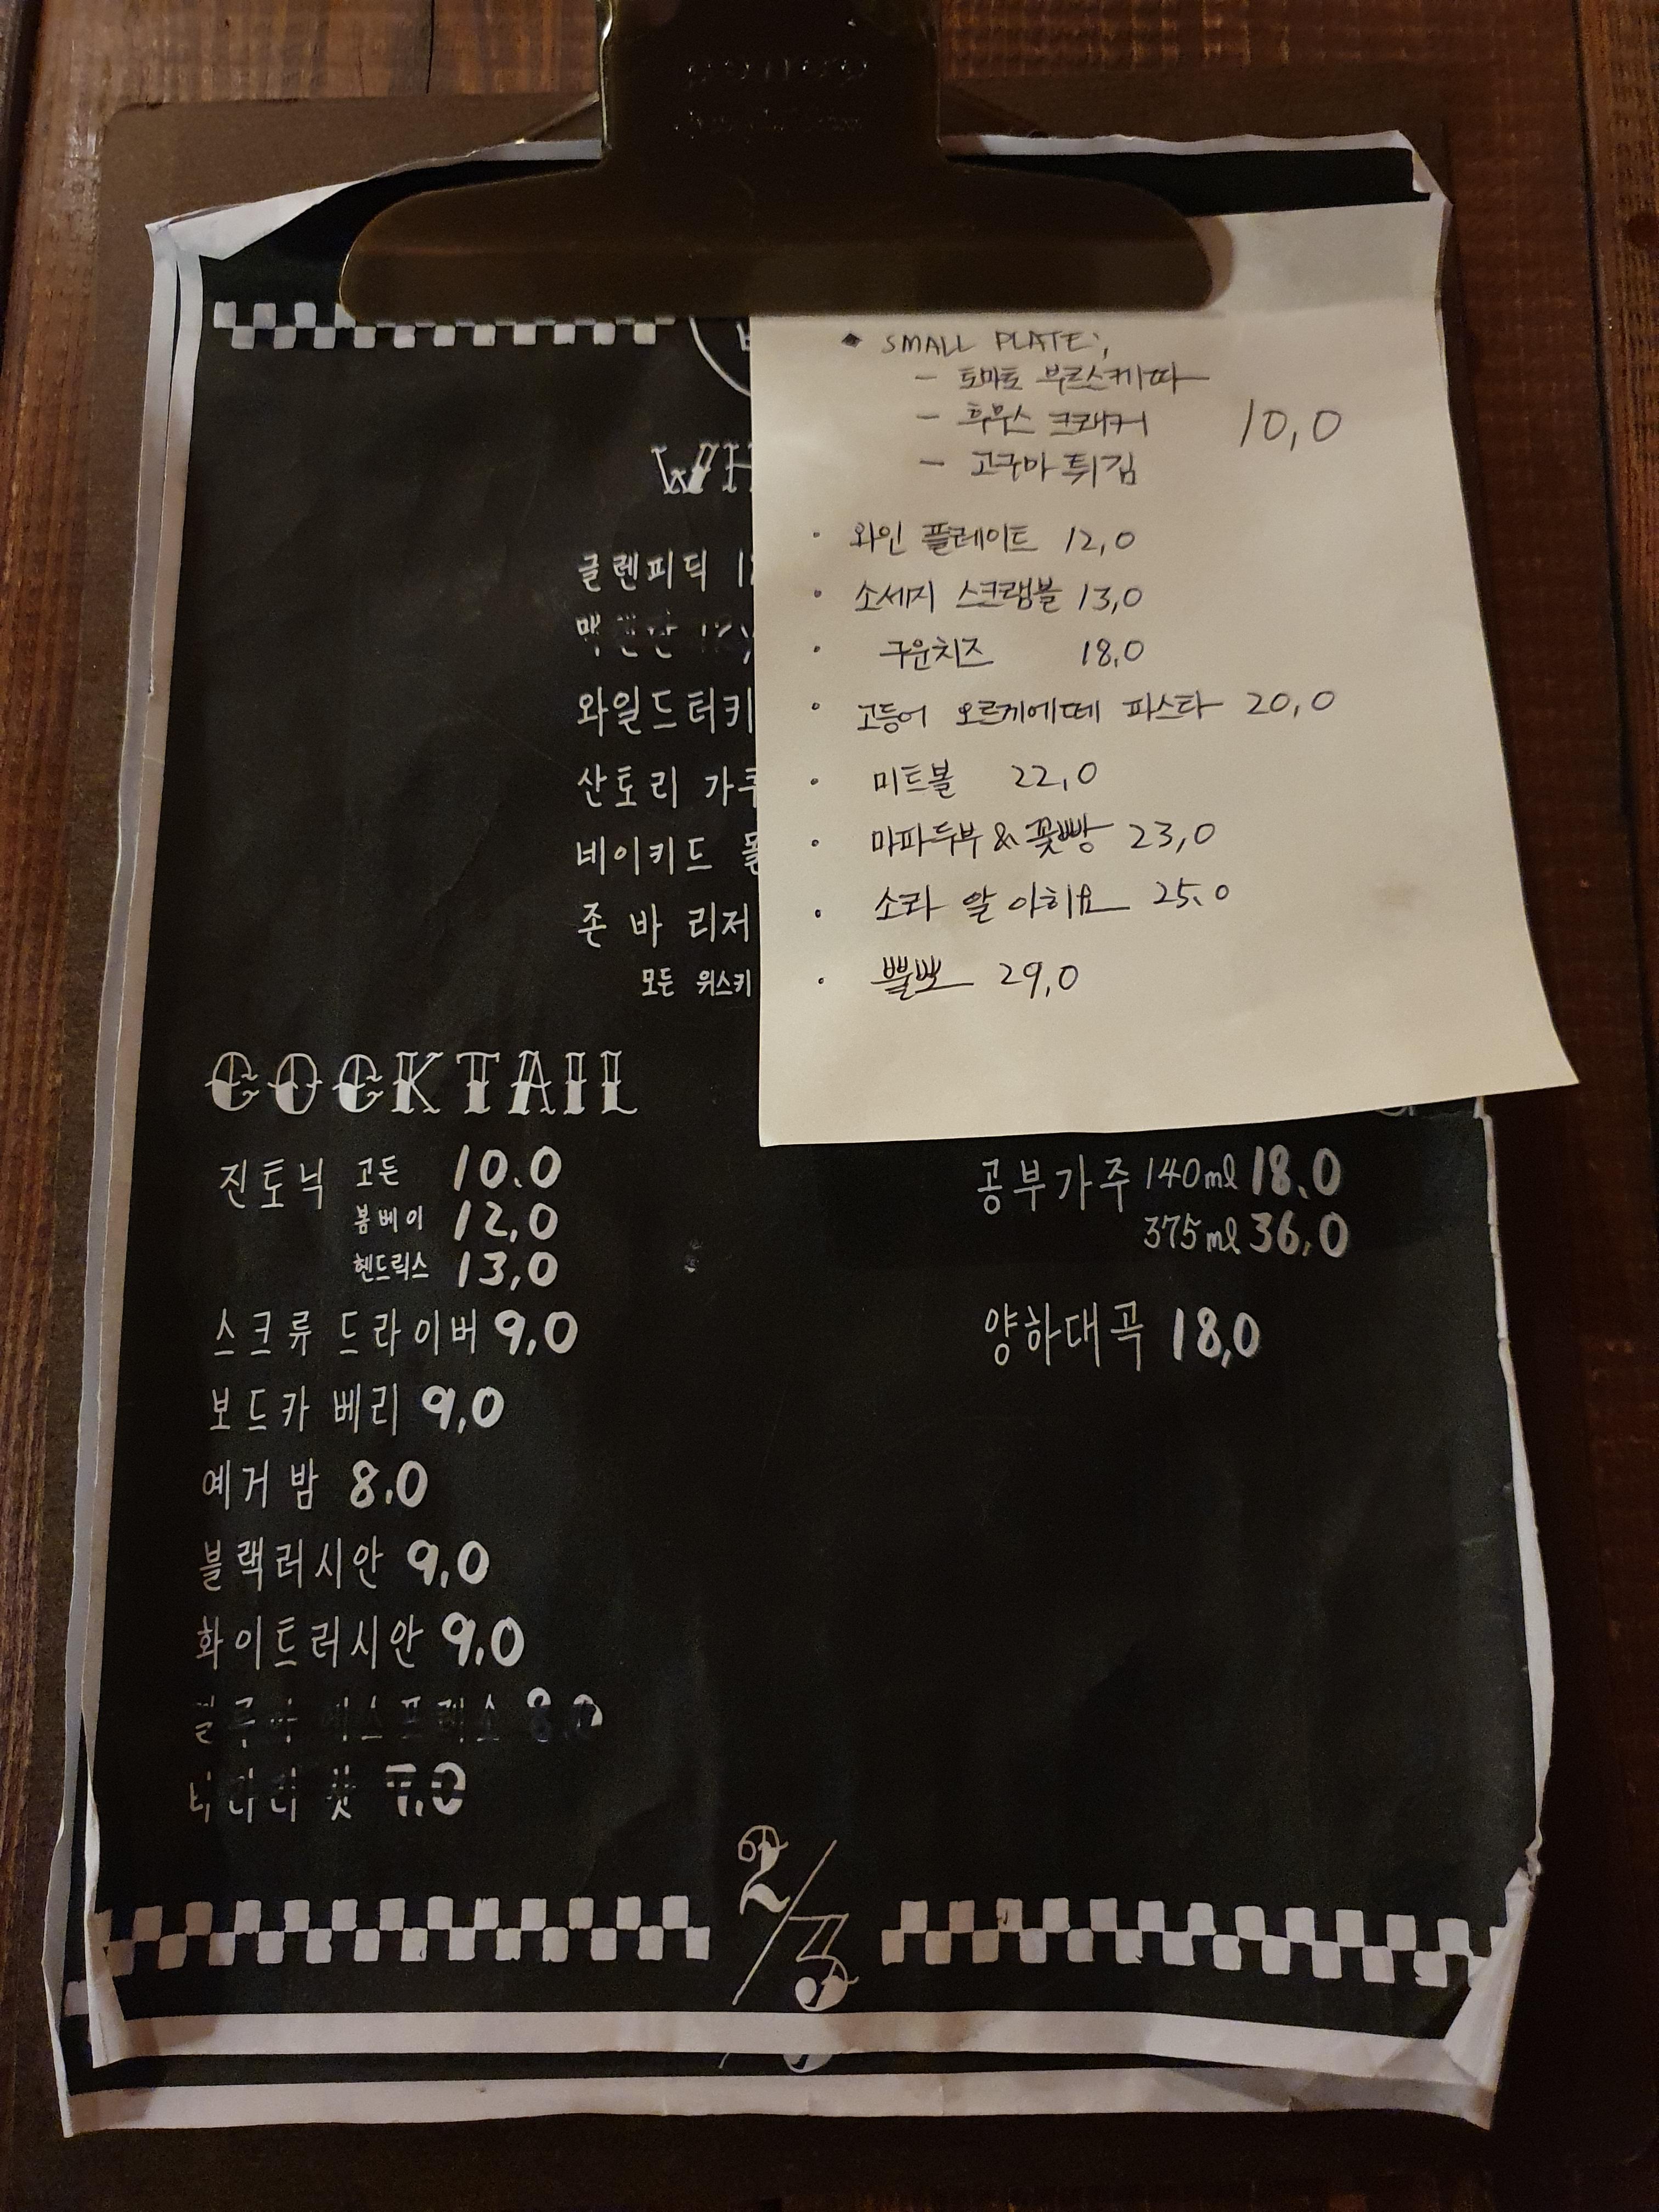 SMALL PLATE;
- 토마토 부르스케따
- 후무스 크래커 10,0
- 고구마 튀김
· 와인 플레이트 12,0
· 소세지 스크램블 13,0
· 구운치즈 18,0
· 고등어 오르게에떼 파스타 20,0
· 미트볼 22,0
· 마파두부 & 꽃빵 23,0
· 소라 알 아히요 25,0
· 뽈뽀 29,0
WH
글렌피딕
와일드터키
산토리 가쿠
네이키드
존 바 리저
모든 위스키
COCKTAIL
진토닉 고든 10.0
봄베이 12,0
헨드릭스 13,0
스크류 드라이버 9,0
보드카 베리 9,0
예거밤 8.0
블랙러시안 9,0
화이트러시안 9.0
에스프레소 8.0
7.0
공부가주 140ml 18.0
375ml 36,0
양하대곡 18,0
2/3